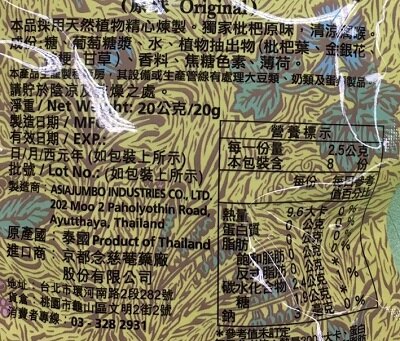 (原味 Original)
本品採用天然植物精心煉製。獨家枇杷原味，清涼潤喉。
成份:糖、葡萄糖漿、水、植物抽出物(枇杷葉、金銀花、
梗、甘草)、香料、焦糖色素、薄荷。
本產品生產製程廠房，其設備或生產管線有處理大豆類、奶類及蛋
請貯於陰涼及乾燥之處。
淨重/Net Weight: 20公克/20g
製造日期/MFG
有效日期/EXP.:
日/月/西元年(如包裝上所示)
批號/Lot No.:(如包裝上所示)
製造商: ASIAJUMBO INDUSTRIES CO., LTD.
202 Moo 2 Paholyothin Road,
Ayutthaya, Thailand
原產國: 泰國Product of Thailand
進口商: 京都念慈菴藥廠
股份有限公司
地址: 台北市環河南路2段282號
倉庫: 桃園市龜山區文明2街2號
消費者專線: 03-328 2931
營養標示
每一份量 2.5公克
本包裝含 8 份
每份 每日參考
值百分比
熱量 9.6大卡 0%
蛋白質 0 公克 0%
脂肪 0 公克 0%
飽和脂肪 0 公克 0%
反式脂肪 0 公克 *
碳水化合物 2.4公克
糖 1.9公克 *
鈉 毫克 0%
*參考值未訂定